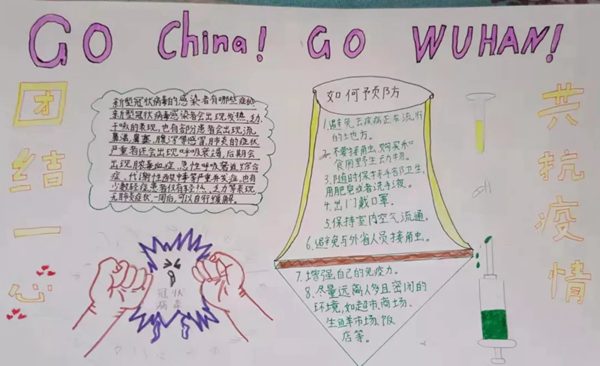 GO China! GO WUHAN!
团结一心
新型冠状病毒的感染者有哪些症状
新型冠状病毒感染者会出现发热、乏力、
干咳的表现,也有部分患者会出现流
鼻涕、鼻塞、腹泻等感冒、肺炎的症状
严重者还会出现呼吸衰竭,后期会
出现脓毒血症,急性呼吸窘迫综合
症,代谢性酸中毒等严重并发症,也有
少数轻症患者仅有轻热、乏力等表现
无肺炎症状,一周后,可以自行缓解。
冠状
病毒
如何预防
1.避免去疾病正在流行
的地方。
2.不要接触、购买和
食用野生动物。
3.随时保持手部卫生,
用肥皂或者洗手液。
4.出门戴口罩。
5.保持室内空气流通。
6.避免与外省人员接触。
7.增强自己的免疫力。
8.尽量远离人多且密闭的
环境,如超市商场、
生鲜市场、饭
店等。
共抗疫情